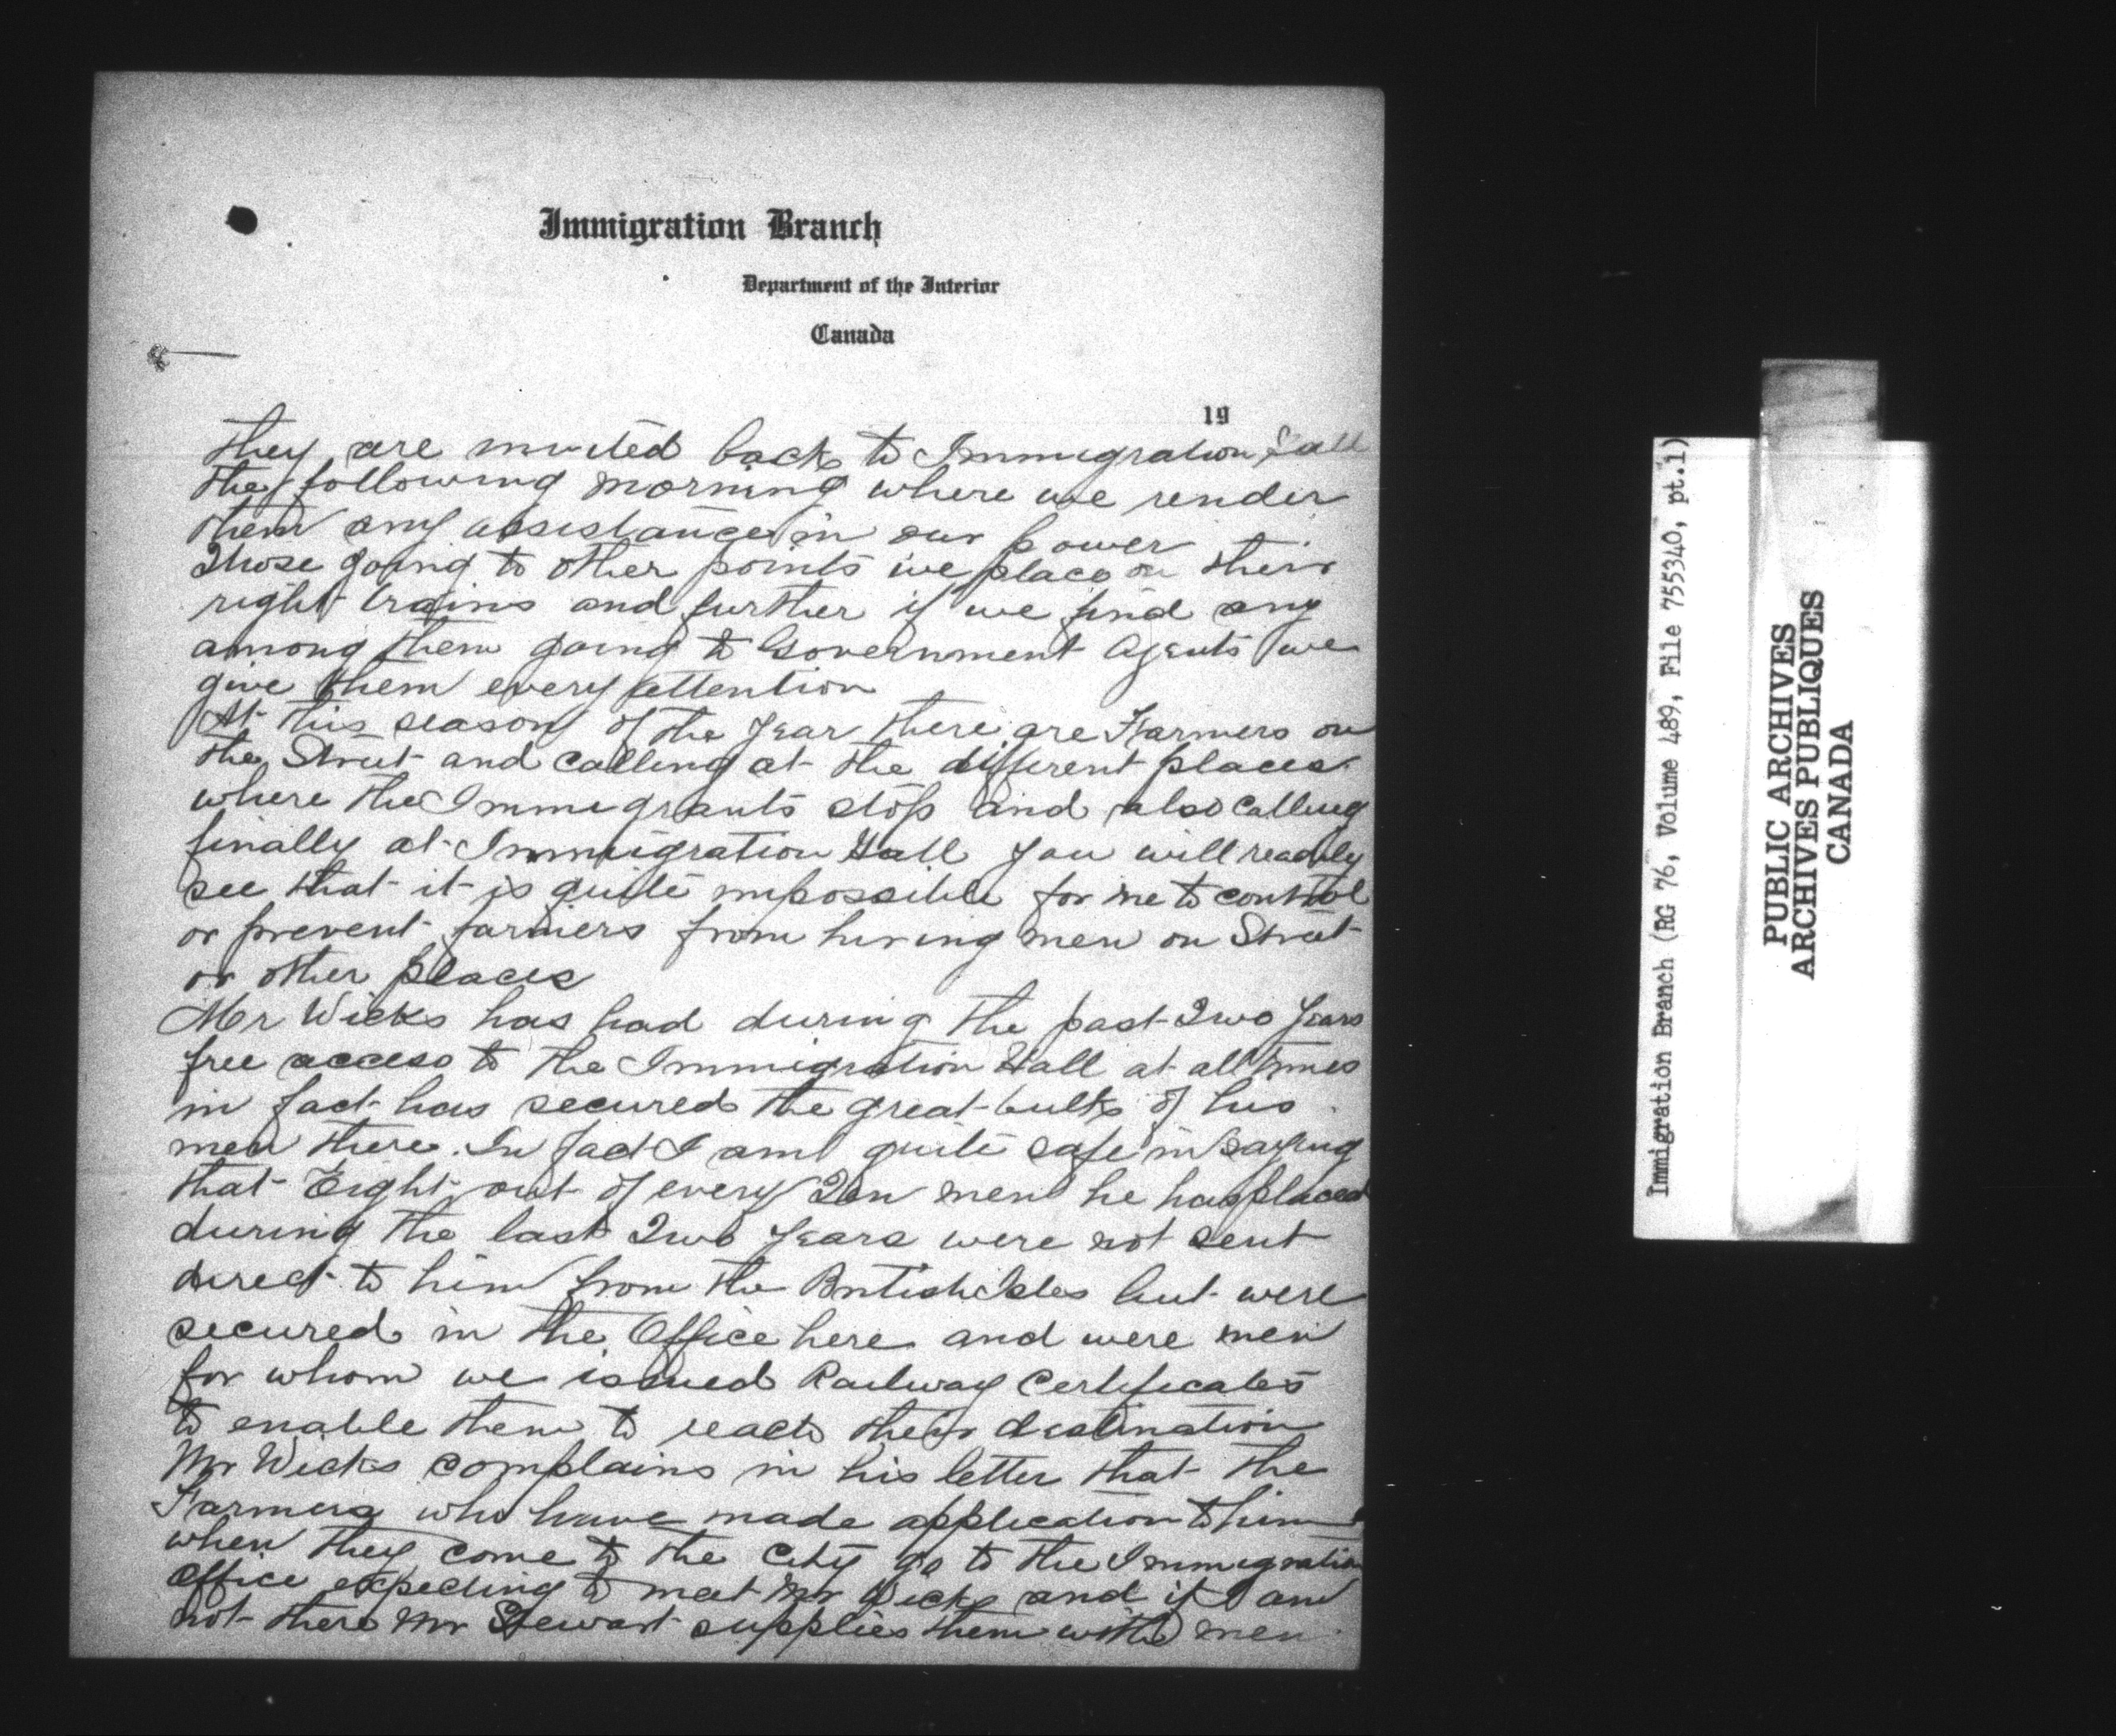 Immigration Branch
Department of the Interior
Canada
19
they are invited back to Immigration Hall
the following morning where we render
them any assistance in our power
Those going to other points we place on their
right trains and further if we find any
among them going to Government Agents we
give them every attention
At this season of the Year there are Farmers on
the Street and calling at the different places
where the Immigrants stop and also calling
finally at Immigration Hall you will readily
see that it is quite impossible for me to control
or prevent farmers from hiring men on Street
or other places
Mr Wicks has had during the past Two Years
free access to the Immigration Hall at all times
in fact has secured the great bulk of his
men there. In fact I am quite safe in saying
that Eight out of every Ten men he has placed
during the last Two Years were not sent
direct to him from the British Isles but were
secured in the Office here and were men
for whom we issued Railway Certificates
to enable them to reach their destination
Mr Wicks complains in his letter that the
Farmers who have made application to him
when they come to the City go to the Immigration
Office expecting to meet Mr Wicks and if I am
not there Mr Stewart supplies them with men
Immigration Branch (RG 76, Volume 489, File 755340, pt.1)
PUBLIC ARCHIVES
ARCHIVES PUBLIQUES
CANADA